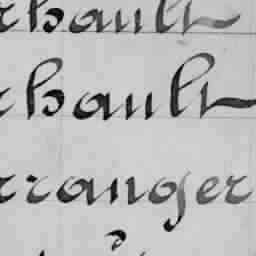 rhault
rhault
rranger